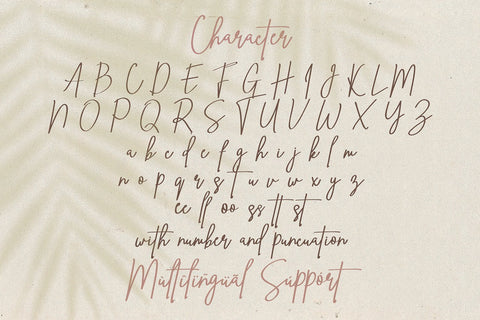 Character
A B C D E F G H I J K L M
N O P Q R S T U V W X Y Z
a b c d e f g h i j k l m
n o p q r s t u v w x y z
ee ll oo ss tt st
with number and puncuation
Mùltïlïngüãl Süppört